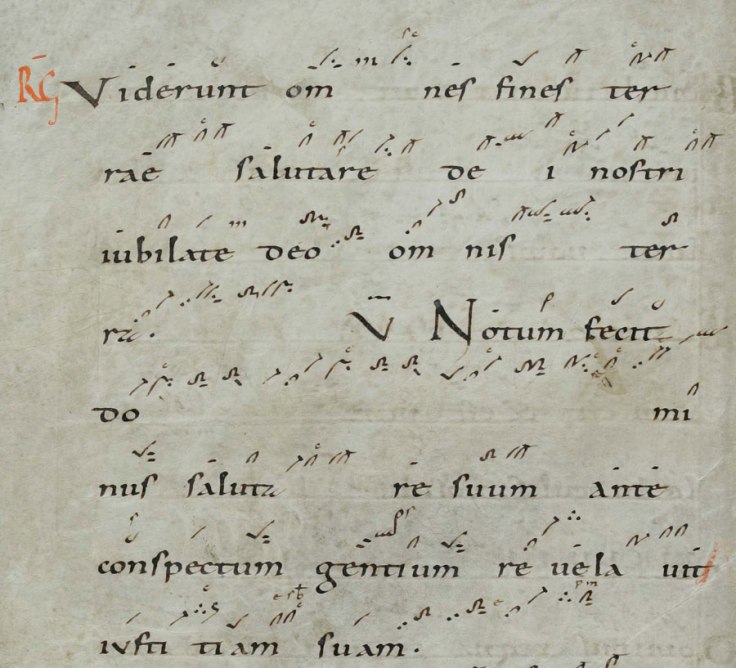 RG Viderunt om nes fines ter
rae salutare de i nostri
iubilate deo om nis ter
ra. V Notum fecit
do mi
nus saluta re suum ante
conspectum gentium re uela uit
iusti tiam suam.